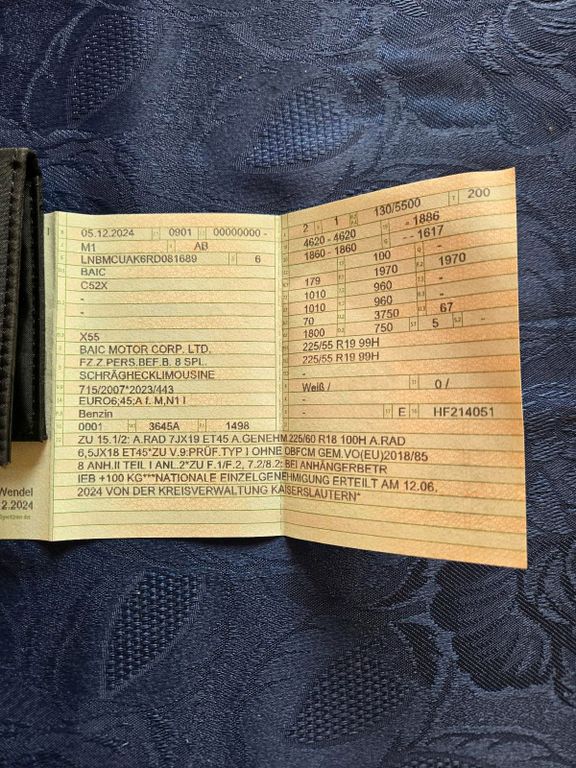 05.12.2024 0901 00000000 -
M1 AB
LNBMCUAK6RD081689 6
BAIC
C52X
-
-
X55
BAIC MOTOR CORP. LTD.
FZ.Z.PERS.BEF.B. 8 SPL.
SCHRÄGHECKLIMOUSINE
715/2007*2023/443
EURO6;45;A I, M,N1 I
Benzin
0001 3645A 1498
2 1 130/5500 200
4620 - 4620 - 1886
1860 - 1860 - 1617
100 - 1970
179 1970
1010 960
1010 960 67
70 3750
1800 750 5 -
225/55 R19 99H
225/55 R19 99H
-
Weiß / 0 /
-
- E HF214051
ZU 15.1/2: A.RAD 7JX19 ET45 A.GENEHM.225/60 R18 100H A.RAD
6,5JX18 ET45*ZU V.9:PRÜF.TYP I OHNE OBFCM GEM.VO(EU)2018/85
8 ANH.II TEIL I ANL.2*ZU F.1/F.2, 7.2/8.2: BEI ANHÄNGERBETR
IEB +100 KG***NATIONALE EINZELGENEHMIGUNG ERTEILT AM 12.06.
2024 VON DER KREISVERWALTUNG KAISERSLAUTERN*
Wendel
2.2024